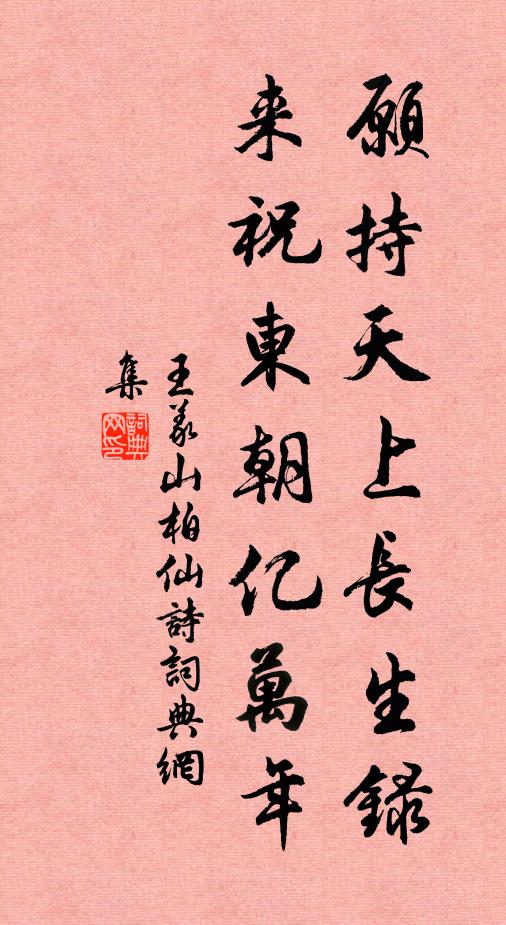 願持天上長生録
来祝東朝亿萬年
王義山柏仙詩詞典網
集
詞典網印